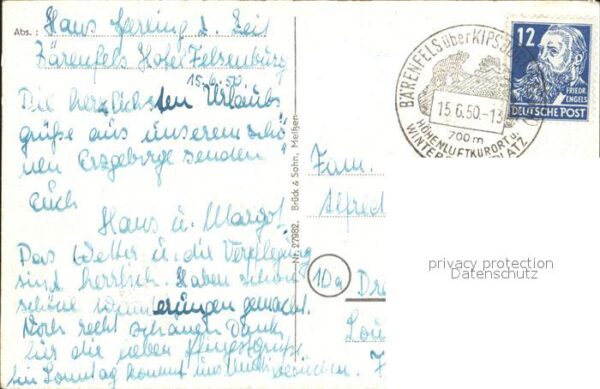 Abs.: Hans Hering z. Zeit
Bärenfels Hotel Felsenburg
15.6.50
Die herzlichsten Urlaubs
grüße aus unserem schö
nen Erzgebirge senden
Euch
Hans u. Margot.
Das Wetter u. die Verpflegung
sind herrlich. Haben schon
schöne Wanderungen gemacht.
Noch recht schönen Dank
für die lieben Pfingstgrüße.
Am Sonntag kommt uns besuchen.
Nr. 27982. Brück & Sohn, Meißen
BÄRENFELS über KIPSD
15.6.50.-13
700 m
HÖHENLUFTKURORT
WINTER PLATZ
12
FRIEDR.
ENGELS
DEUTSCHE POST
Fam.
Alfred
10a Dre
Lou
privacy protection
Datenschutz